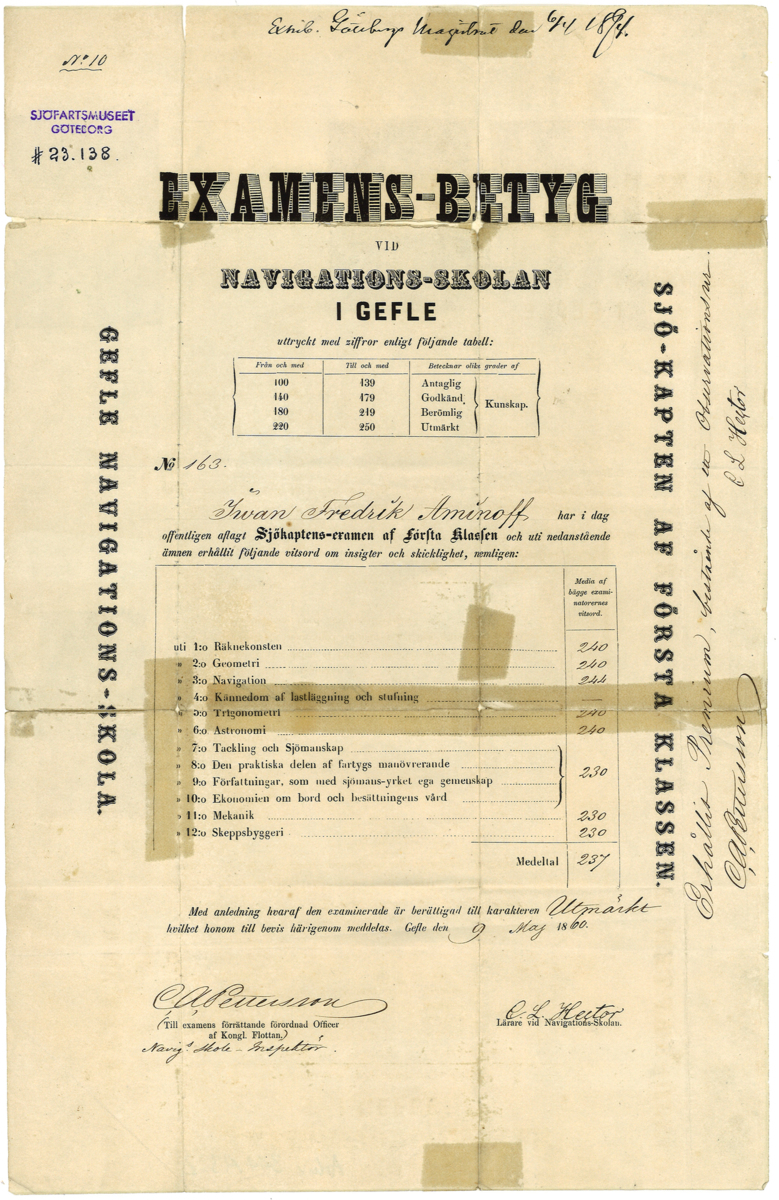 Exhib. Göteborgs Magistrat den 6/4 1894.
No 10
SJÖFARTSMUSEET
GÖTEBORG
# 23.138.
EXAMENS-BETYG
VID
NAVIGATIONS-SKOLAN
I GEFLE
uttryckt med ziffror enligt följande tabell:
Från och med Till och med Betecknar olika grader af
100 139 Antaglig
140 179 Godkänd.
180 219 Berömlig
220 250 Utmärkt
Kunskap.
No 163.
Iwan Fredrik Aminoff har i dag
offentligen aflagt Sjökaptens-examen af Första Klassen och uti nedanstående
ämnen erhållit följande vitsord om insigter och skicklighet, nemligen:
Media af
bägge exami-
natorernes
vitsord.
uti 1:o Räknekonsten 240
» 2:o Geometri 240
» 3:o Navigation 244
» 4:o Kännedom af lastläggning och stufning —
» 5:o Trigonometri 240
» 6:o Astronomi 240
» 7:o Tackling och Sjömanskap
» 8:o Den praktiska delen af fartygs manövrerande
» 9:o Författningar, som med sjömans-yrket ega gemenskap
» 10:o Ekonomien om bord och besättningens vård
230
» 11:o Mekanik 230
» 12:o Skeppsbyggeri 230
Medeltal 237
Med anledning hvaraf den examinerade är berättigad till karakteren Utmärkt
hvilket honom till bevis härigenom meddelas. Gefle den 9 Maj 1860.
C A Pettersson
(Till examens förrättande förordnad Officer
af Kongl. Flottan.)
Navigs Skole-Inspektör.
C. L. Hector
Lärare vid Navigations-Skolan.
GEFLE NAVIGATIONS-SKOLA.
SJÖ-KAPTEN AF FÖRSTA KLASSEN.
Erhållit Premium, bestående af en Observationsur.
C A Pettersson
C L Hector